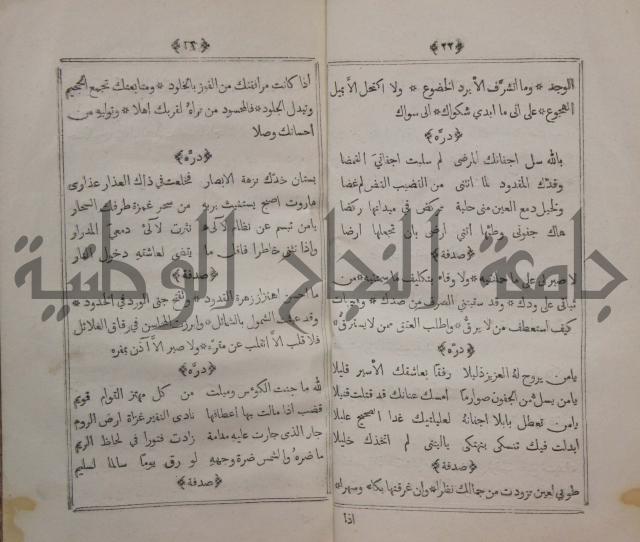 ﴿٢٢﴾
الوجد * وما اتشرف الا برد الخضوع * ولا اكتحل الا بميل
الهجوع * على انى ما ابدي شكواك * الى سواك
﴿دره﴾
بالله سل اجفانك المرضى لم سلبت اجفاني الغمضا
وقدّك المقدود لما انثنى من القضيب النضر لم غضا
وخيل دمع العين من حلبة تركض في ميدانها ركضا
هاك جفونى وطئها اننى ارضى بان تجعلها ارضا
﴿صدفة﴾
لا صبر لى على ما ولا وفاء من
ثباتى على ودك * وقد سقيتنى الصرف من صدك *
كيف استعطف من لا يرقّ * واطلب العتق ممن لا يسترقّ
﴿دره﴾
يامن يروح له العزيز ذليلا رفقا بعاشقك الأسير قليلا
يامن يسل من الجفون صوارما امسك عنانك قد قتلت قتيلا
يامن تعطل بابلا اجفانه لعليلتيك غدا الصحيح عليلا
ابدلت فيك تنسكى بتهتكى ياليتنى لم اتخذك خليلا
﴿صدفة﴾
طوبى لعين تزودت من جمالك نظرا * وان غرقتها بكاء وسهرا *
اذا
﴿٢٣﴾
اذا كانت مرافقتك من الفوز بالخلود * ومتابعتك تجمع الجحيم
وتبدل الجلود * فالمحسود من تراه لقربك اهلا * وتوليه من
احسانك وصلا
﴿دره﴾
بستان خدّك نزهة الابصار فخلعت في ذاك العذار عذارى
هاروت اصبح يستغيث بربه من سحر غمزة طرفك السحار
يامن تبسم عن نظام لآلئ نثرت لآلئ دمعى المدرار
واذا تثنى خاطرا فاقل ما يقضى لعاشقه دخول النار
﴿صدفة﴾
ما احسن اهتزاز زهرة القدود * وتفتح جنى الورد في الخدود *
وقد الشمول بالشمائل * وابرزت المحاسن في رقاق الغلائل
فلا قلب الا انقلب عن مقره * ولا صبر الا آذن بمفره
﴿دره﴾
لله ما جنت الكؤس وميلت من كل مهتز القوام قويم
قضب اذا مالت بها اعطافها نادى النفير غزاة ارض الروم
جار الذى جارت عليه مدامة زادت فتورا في لحاظ الريم
ما ضره والشمس ضرة وجهه لو رق يوما سالما لسليم
﴿صدفة﴾
جامعة النجاح الوطنية